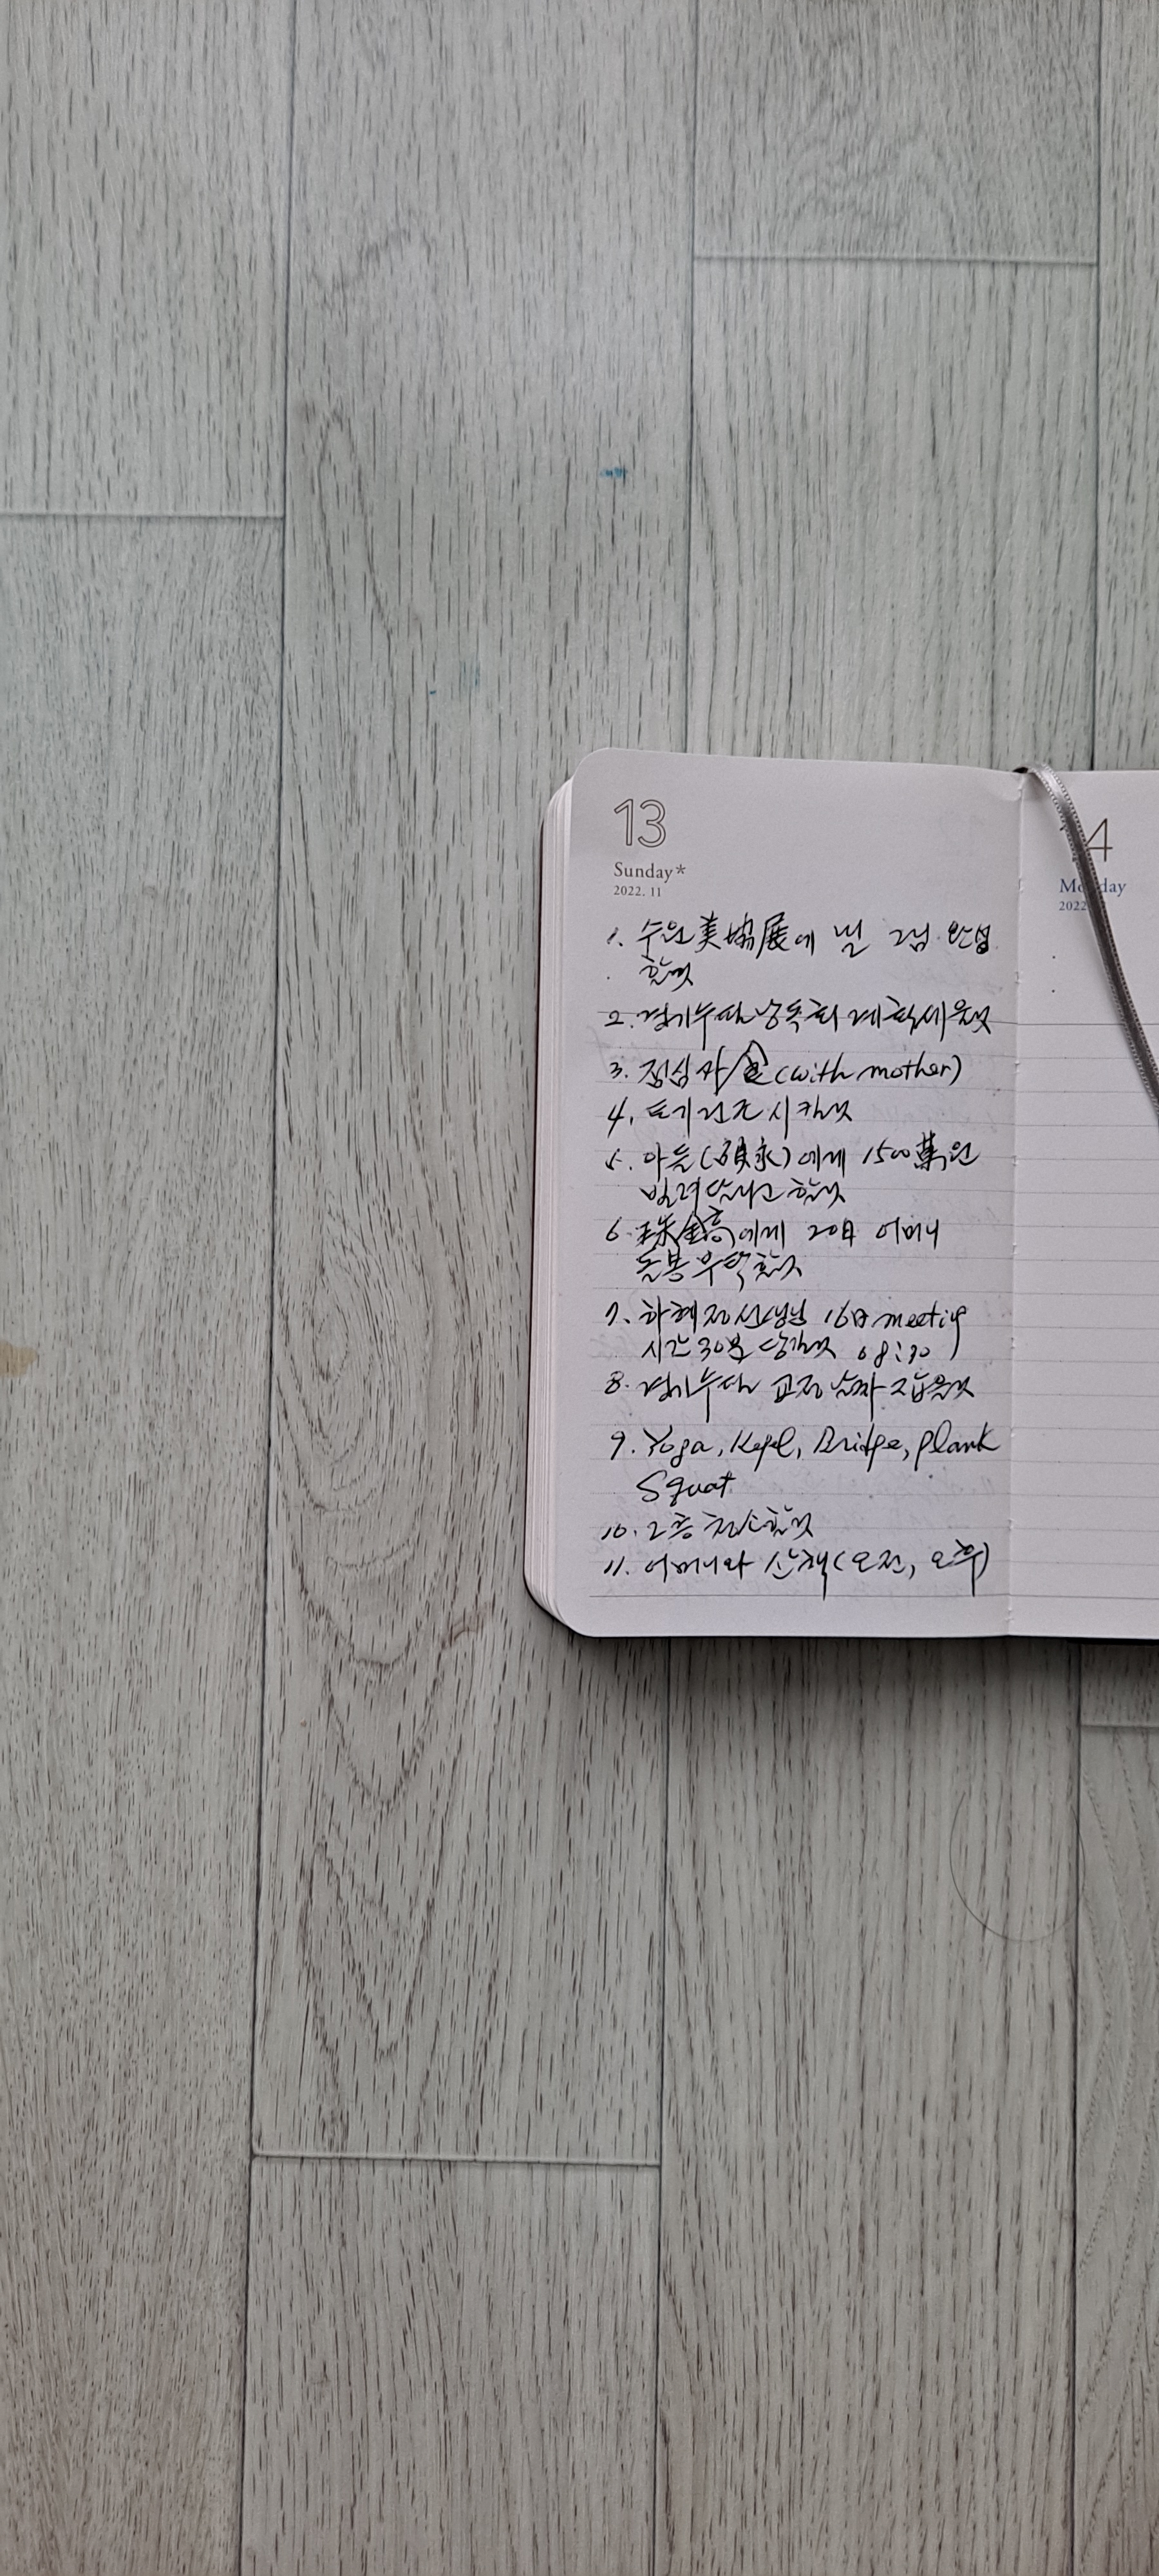 13
Sunday*
2022. 11
1. 수원美協展에 낼 그림 완성
할것
2. 경기수필낭독회 계획세울것
3. 점심 外食 (with mother)
4. 토기건조시킬것
5. 아들(碩永)에게 1500萬원
빌려달라고 할것
6. 에게 20日 어머니
돌봄부탁할것
7. 하혜정선생님 16日 meeting
시간 30분 당길것 08:30)
8. 경기수필 교정날짜 잡을것
9. Yoga, Kegel, Bridge, plank
Squat
10. 2층 청소할것
11. 어머니와 산책(오전, 오후)
14
Monday
2022